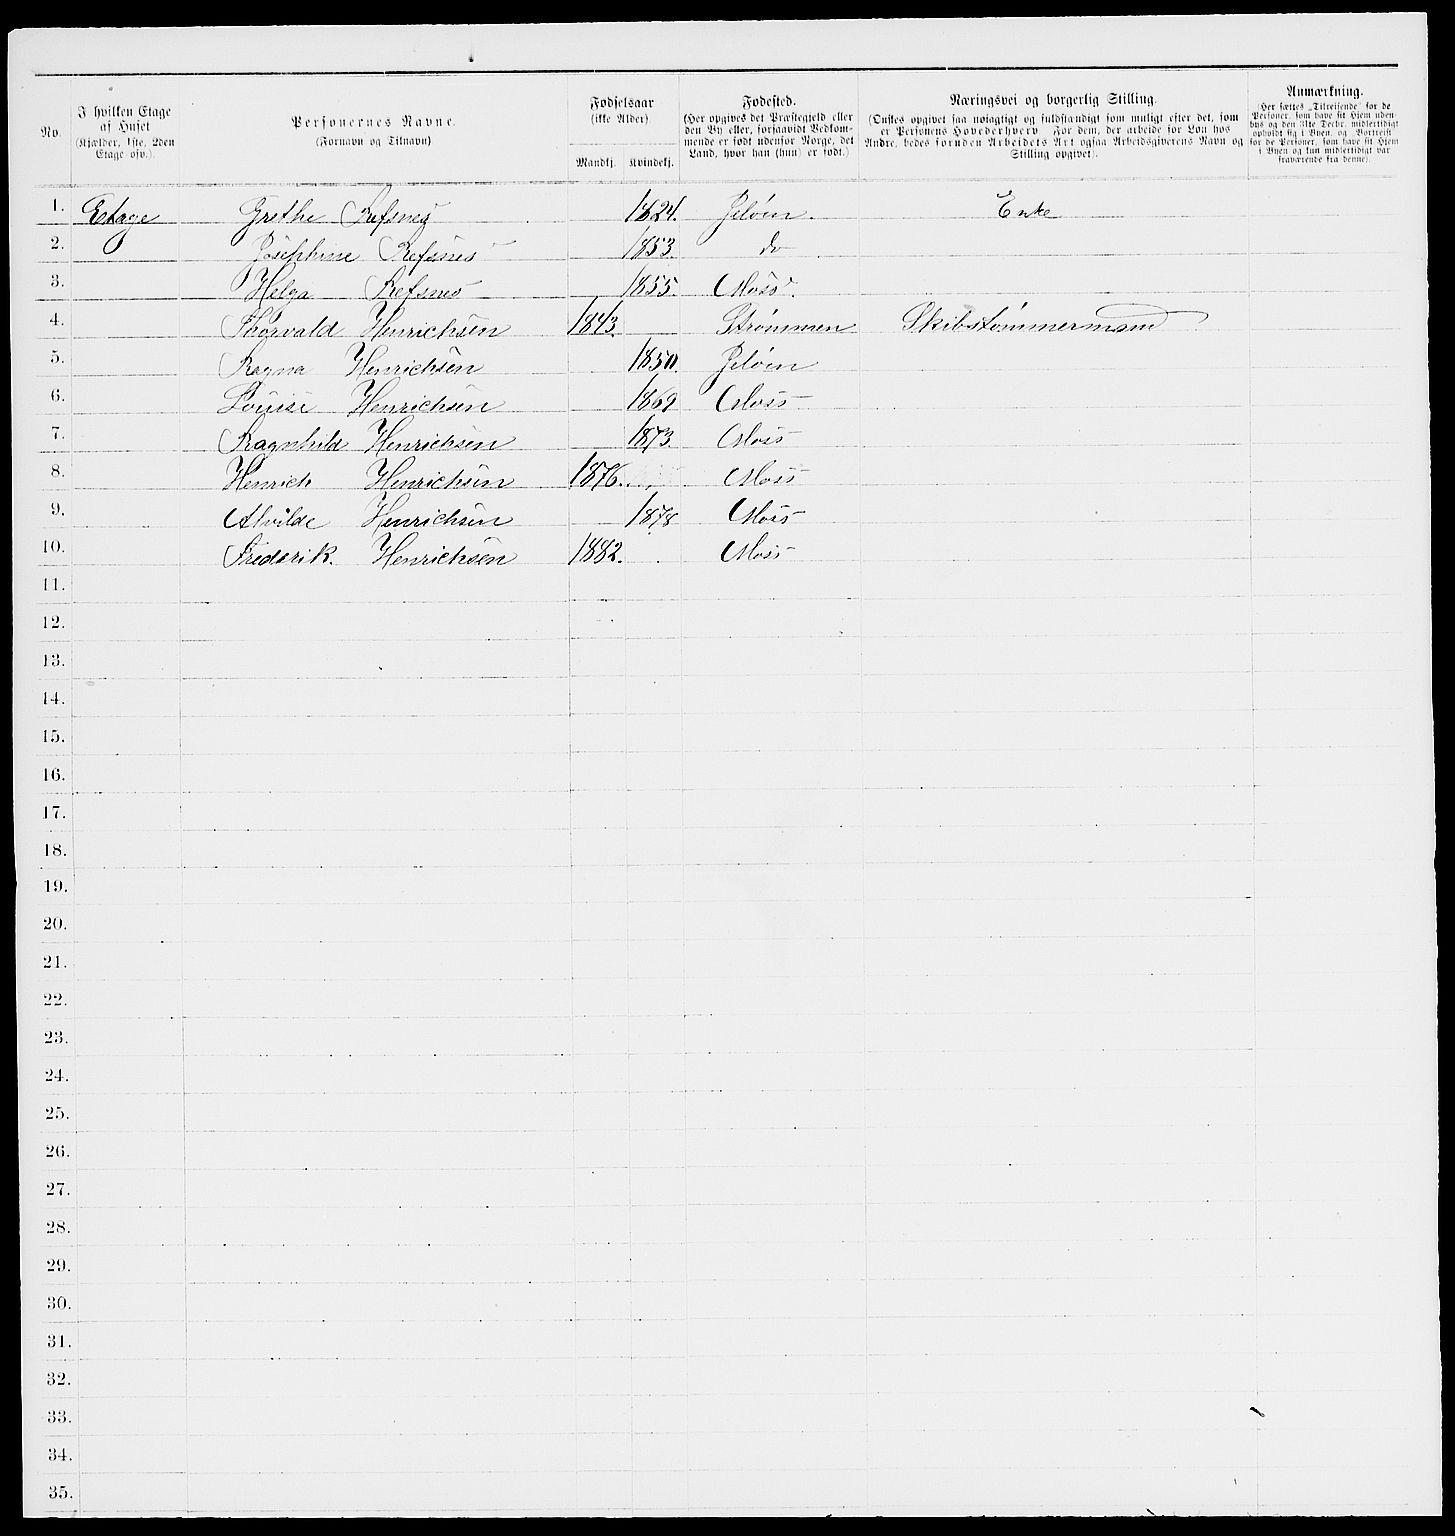 No.
I hvilken Etage af Huset
(Kjælder, 1ste, 2den Etage osv.).
Personernes Navne.
(Fornavn og Tilnavn)
Fødselsaar
(ikke Alder)
Mandkj. Kvindekj.
Fødested.
(Her opgives det Præstegjeld eller
den By eller, forsaavidt Vedkom-
mende er født udenfor Norge, det
Land, hvor han (hun) er født.)
Næringsvei og borgerlig Stilling.
(Ønskes opgivet saa nøiagtigt og fuldstændigt som muligt efter det, som
er Personens Hovederhverv For dem, der arbeide for Løn hos
Andre, bedes foruden Arbeidets Art ogsaa Arbeidsgiverens Navn og
Stilling opgivet).
Anmærkning.
(Her sættes „Tilreisende" for de
Personer, som have sit Hjem uden-
bys og den 31te Decbr. midlertidigt
opholdt sig i Byen, og „Bortreist"
for de Personer, som have sit Hjem
i Byen og kun midlertidigt var
fraværende fra denne).
1. Etage Grethe Refsnes 1824. Jeløen. Enke
2. Josephine Refsnes 1853. do
3. Helga Refsnes 1855. Moss.
4. Thorvald Henrichsen 1843. Strømmen Skibstømmermand
5. Ragna Henrichsen 1850. Jeløen
6. Louise Henrichsen 1869 Moss
7. Ragnhild Henrichsen 1873. Moss
8. Henrich Henrichsen 1876. Moss
9. Alvilde Henrichsen 1878 Moss
10. Frederik. Henrichsen 1882. Moss
11.
12.
13.
14.
15.
16.
17.
18.
19.
20.
21.
22.
23.
24.
25.
26.
27.
28.
29.
30.
31.
32.
33.
34.
35.